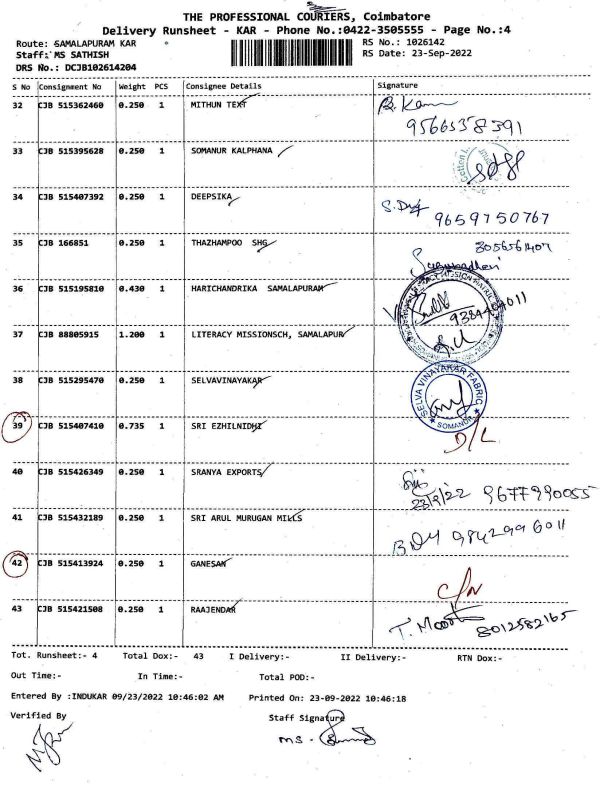 THE PROFESSIONAL COURIERS, Coimbatore
Delivery Runsheet - KAR - Phone No.:0422-3505555 - Page No.:4
Route: SAMALAPURAM KAR
RS No.: 1026142
Staff: MS SATHISH
RS Date: 23-Sep-2022
DRS No.: DCJB102614204
S No Consignment No Weight PCS Consignee Details Signature
32 CJB 515362460 0.250 1 MITHUN TEXT
9566538391
33 CJB 515395628 0.250 1 SOMANUR KALPHANA
34 CJB 515407392 0.250 1 DEEPSIKA
9659750767
35 CJB 166851 0.250 1 THAZHAMPOO SHG
8056561407
36 CJB 515195810 0.430 1 HARICHANDRIKA SAMALAPURAM
9384404011
37 CJB 88805915 1.200 1 LITERACY MISSIONSCH, SAMALAPUR
38 CJB 515295470 0.250 1 SELVAVINAYAKAR
SELVA VINAYAKAR FABRIC
SOMANUR
39 CJB 515407410 0.735 1 SRI EZHILNIDHI
D/L
40 CJB 515426349 0.250 1 SRANYA EXPORTS
23/9/22 9677990055
41 CJB 515432189 0.250 1 SRI ARUL MURUGAN MILLS
9842996011
42 CJB 515413924 0.250 1 GANESAN
C/N
43 CJB 515421508 0.250 1 RAAJENDAR
8012582165
Tot. Runsheet:- 4 Total Dox:- 43 I Delivery:- II Delivery:- RTN Dox:-
Out Time:- In Time:- Total POD:-
Entered By :INDUKAR 09/23/2022 10:46:02 AM Printed On: 23-09-2022 10:46:18
Verified By Staff Signature